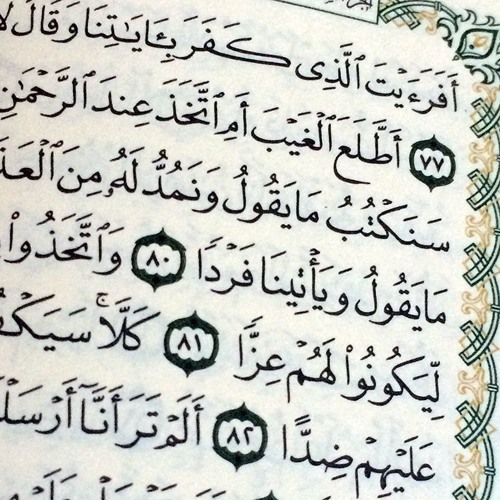 أَفَرَءَيۡتَ ٱلَّذِي كَفَرَ بِـَٔايَٰتِنَا وَقَالَ
٧٧ أَطَّلَعَ ٱلۡغَيۡبَ أَمِ ٱتَّخَذَ عِندَ ٱلرَّحۡمَٰنِ
سَنَكۡتُبُ مَا يَقُولُ وَنَمُدُّ لَهُۥ مِنَ ٱلۡعَذَ
مَا يَقُولُ وَيَأۡتِينَا فَرۡدٗا ٨٠ وَٱتَّخَذُواْ
لِّيَكُونُواْ لَهُمۡ عِزّٗا ٨١ كَلَّاۚ سَيَكۡفُ
عَلَيۡهِمۡ ضِدًّا ٨٢ أَلَمۡ تَرَ أَنَّآ أَرۡسَلۡ